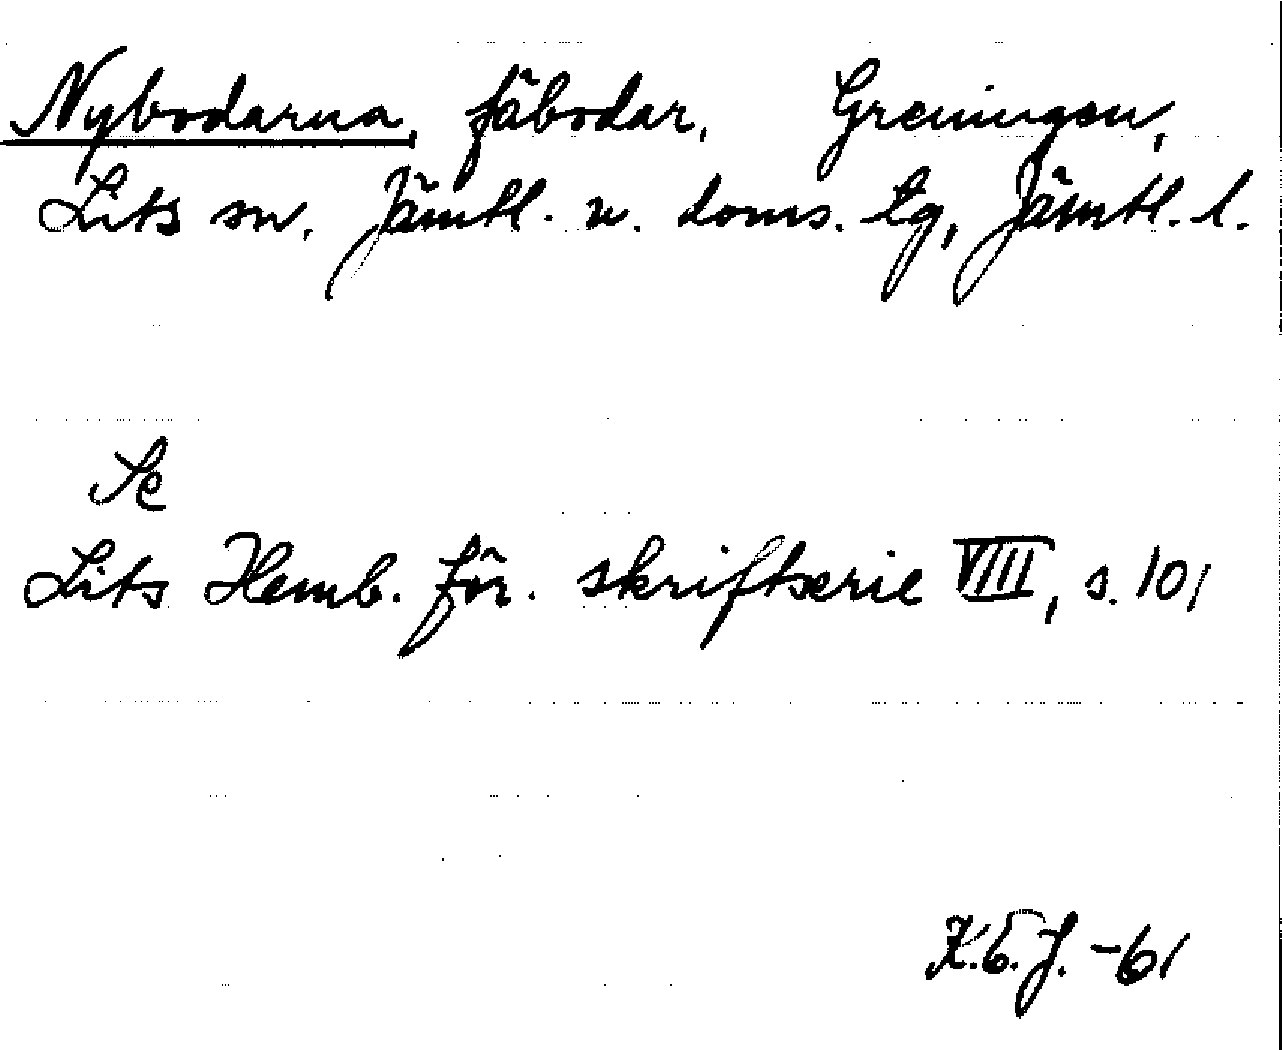 Nybodarna, fäbodar, Greningen,
Lits sn, Jämtl. n. doms. tg, Jämtl. l.
Se
Lits Hemb. för. skriftserie VIII, s. 101
K.E.J. -61